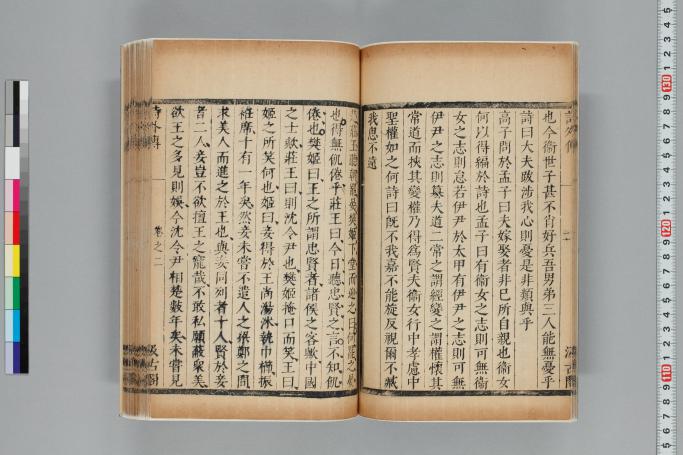 詩外傳
二
汲古閣
也今衞世子甚不肖好兵吾男弟三人能無憂乎
詩曰大夫跋涉我心則憂是非類與乎
高子問於孟子曰夫嫁娶者非己所自親也衞女
何以得編於詩也孟子曰有衞女之志則可無衞
女之志則怠若伊尹於太甲有伊尹之志則可無
伊尹之志則簒夫道二常之謂經變之謂權懷其
常道而挾其變權乃得爲賢夫衞女行中孝慮中
聖權如之何詩曰旣不我嘉不能旋反視爾不臧
我思不遠
莊王聽朝罷晏樊姬下堂而迎之曰何罷之晏
也得無飢倦乎莊王曰今日聽忠賢之言不知飢
倦也樊姬曰王之所謂忠賢者諸侯之客歟中國
之士歟莊王曰則沈令尹也樊姬掩口而笑王曰
姬之所笑何也姬曰妾得於王尚湯沐執巾櫛振
衽席十有一年矣然妾未嘗不遣人之梁鄭之間
求美人而進之於王也與妾同列者十人賢於妾
者二人妾豈不欲擅王之寵哉不敢私願蔽衆美
欲王之多見則娛今沈令尹相楚數年矣未嘗見
詩外傳
卷之二
汲古閣